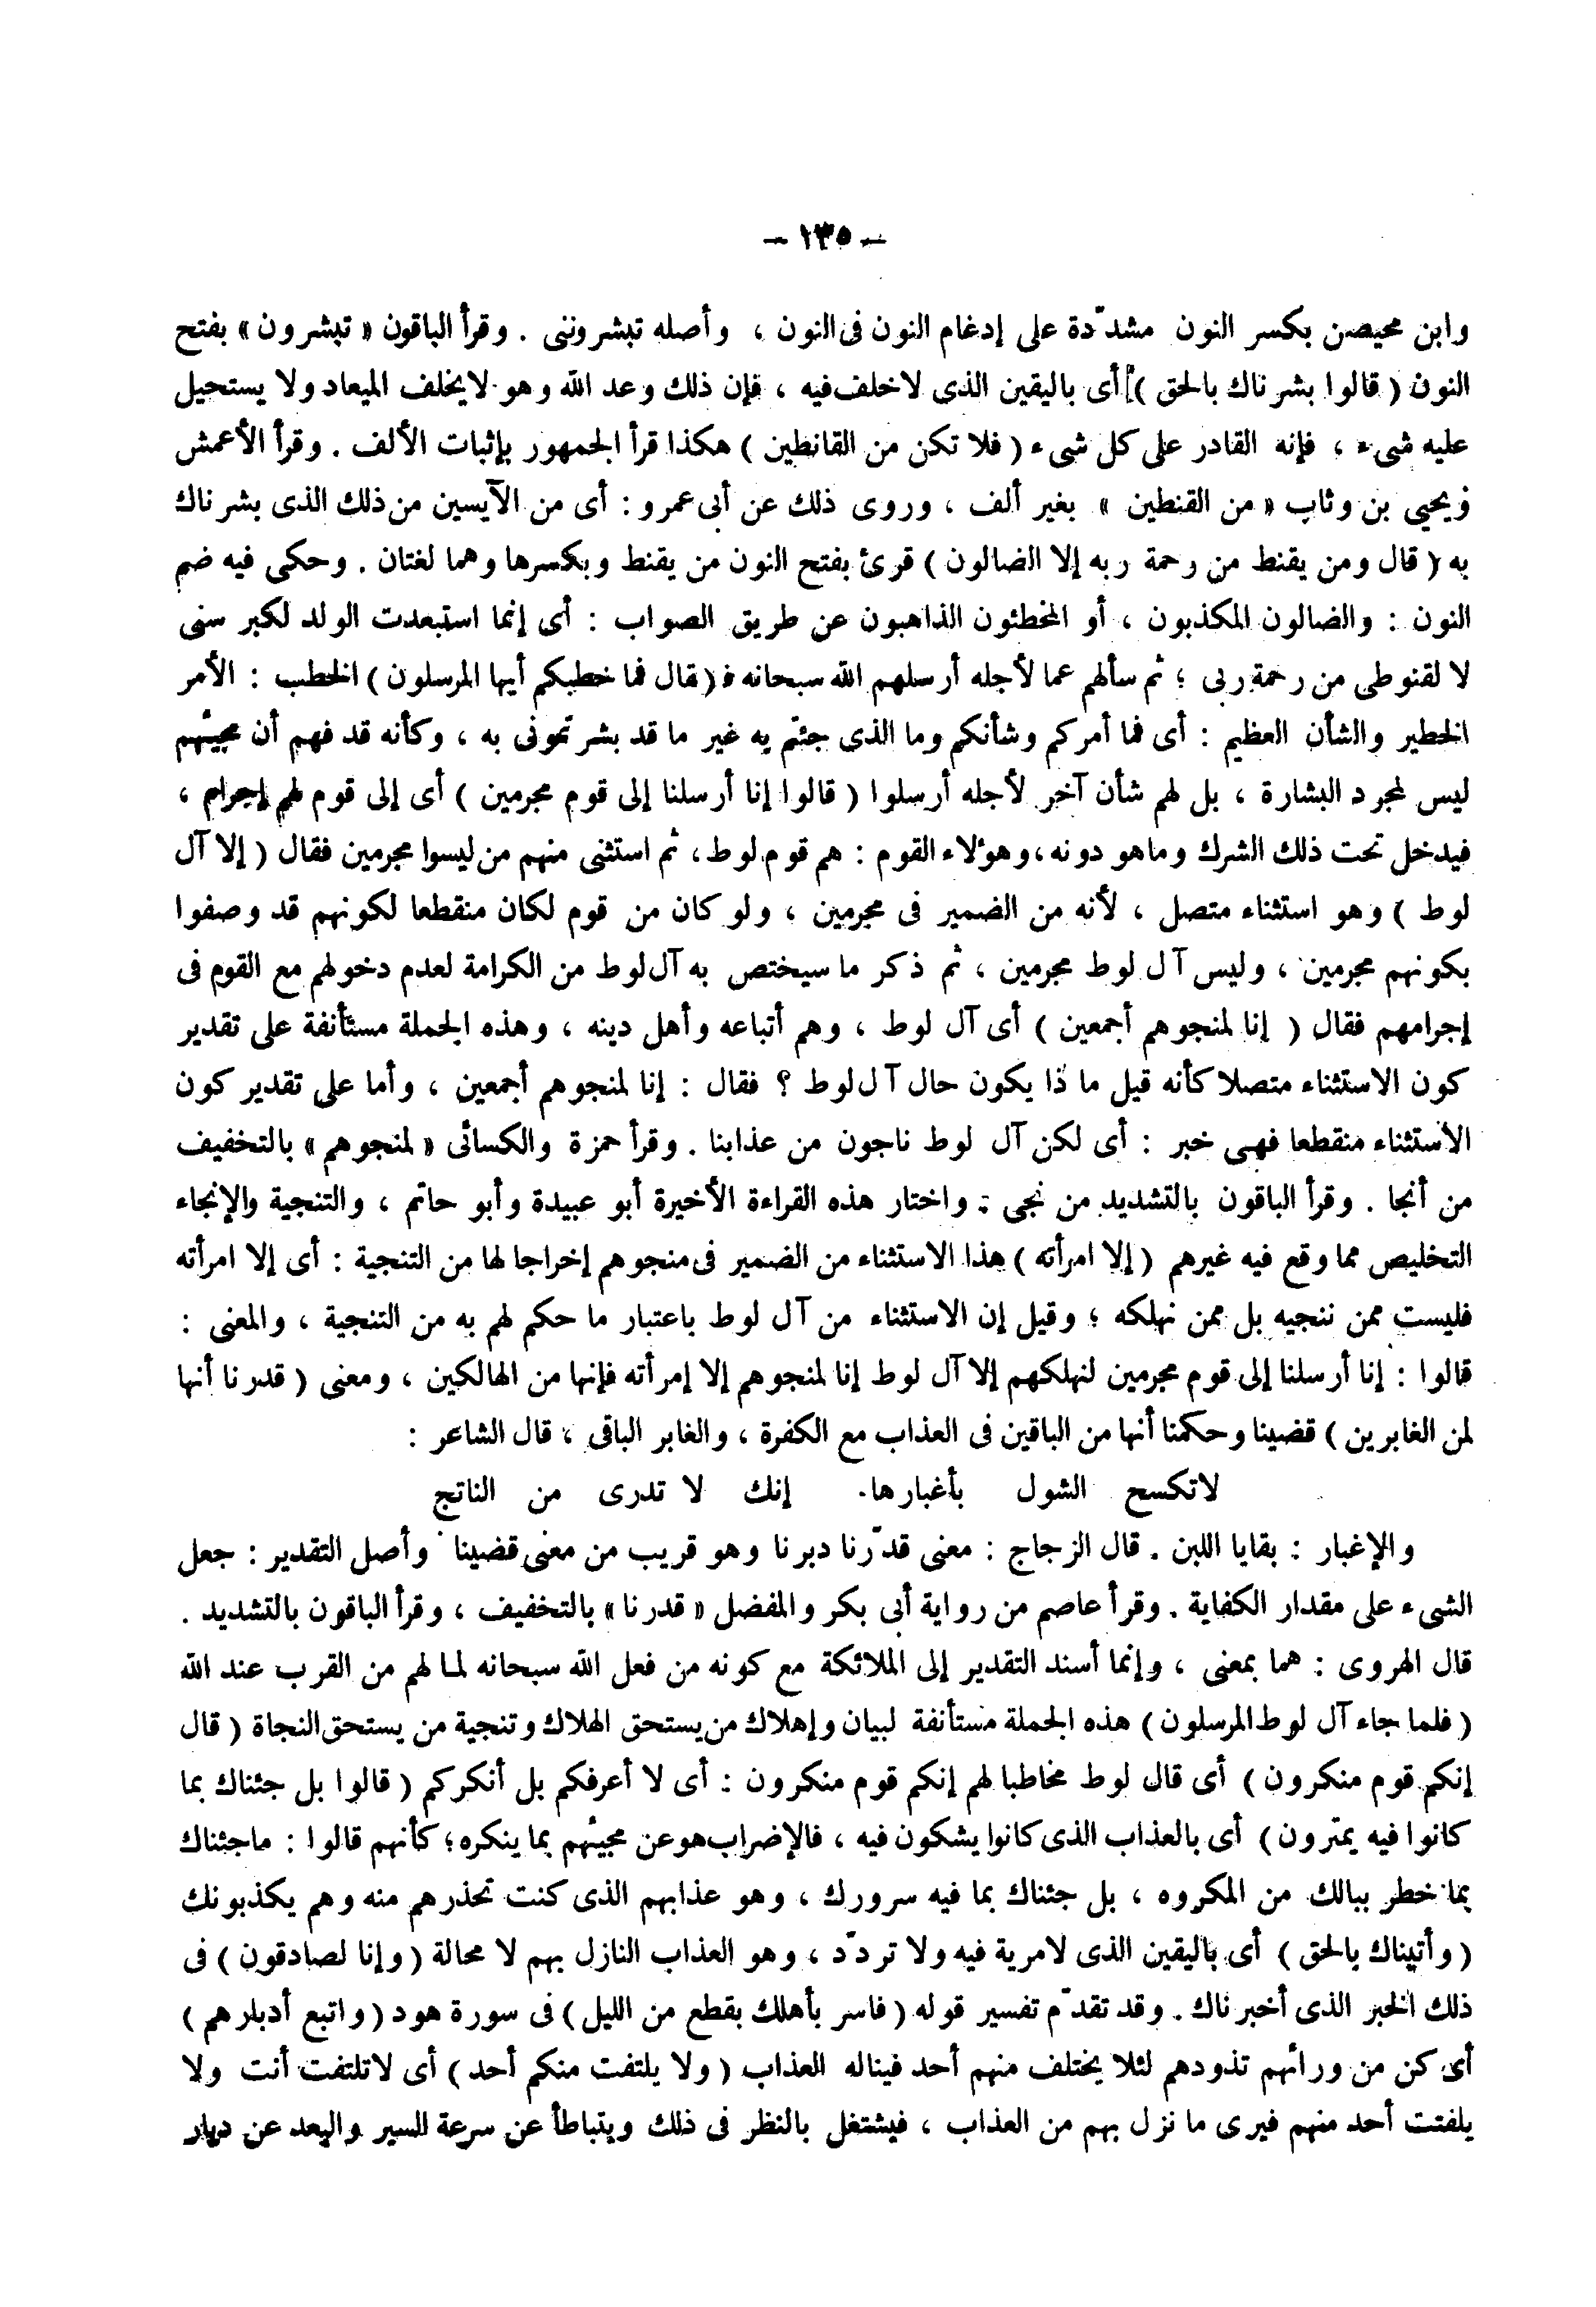 – ١٣٥ –
وابن محيصن بكسر النون مشدّدة على إدغام النون فى النون ، وأصله تبشروننى . وقرأ الباقون « تبشرون » بفتح
النون ( قالوا بشرناك بالحق ) أى باليقين الذى لاخلف فيه ، فإن ذلك وعد الله وهو لايخلف الميعاد ولا يستحيل
عليه شىء ، فإنه القادر على كل شىء ( فلا تكن من القانطين ) هكذا قرأ الجمهور بإثبات الألف . وقرأ الأعمش
ويحيى بن وثاب « من القنطين » بغير ألف ، وروى ذلك عن أبى عمرو : أى من الآيسين من ذلك الذى بشرناك
به ( قال ومن يقنط من رحمة ربه إلا الضالون ) قرئ بفتح النون من يقنط وبكسرها وهما لغتان . وحكى فيه ضم
النون : والضالون المكذبون ، أو المخطئون الذاهبون عن طريق الصواب : أى إنما استبعدت الولد لكبر سنى
لا لقنوطى من رحمة ربى ؛ ثم سألهم عما لأجله أرسلهم الله سبحانه فـ ( قال فما خطبكم أيها المرسلون ) الخطب : الأمر
الخطير والشأن العظيم : أى فما أمركم وشأنكم وما الذى جئتم به غير ما قد بشرتمونى به ، وكأنه قد فهم أن مجيئهم
ليس لمجرد البشارة ، بل لهم شأن آخر لأجله أرسلوا ( قالوا إنا أرسلنا إلى قوم مجرمين ) أى إلى قوم لهم إجرام ،
فيدخل تحت ذلك الشرك وماهو دونه ، وهؤلاء القوم : هم قوم لوط ، ثم استثنى منهم من ليسوا مجرمين فقال ( إلا آل
لوط ) وهو استثناء متصل ، لأنه من الضمير فى مجرمين ، ولو كان من قوم لكان منقطعا لكونهم قد وصفوا
بكونهم مجرمين ، وليس آل لوط مجرمين ، ثم ذكر ما سيختص به آل لوط من الكرامة لعدم دخولهم مع القوم فى
إجرامهم فقال ( إنا لمنجوهم أجمعين ) أى آل لوط ، وهم أتباعه وأهل دينه ، وهذه الجملة مستأنفة على تقدير
كون الاستثناء متصلا كأنه قيل ما ذا يكون حال آل لوط ؟ فقال : إنا لمنجوهم أجمعين ، وأما على تقدير كون
الأستثناء منقطعا فهى خبر : أى لكن آل لوط ناجون من عذابنا . وقرأ حمزة والكسائى « لمنجوهم » بالتخفيف
من أنجا . وقرأ الباقون بالتشديد من نجى . واختار هذه القراءة الأخيرة أبو عبيدة وأبو حاتم ، والتنجية والإنجاء
التخليص مما وقع فيه غيرهم ( إلا امرأته ) هذا الاستثناء من الضمير فى منجوهم إخراجا لها من التنجية : أى إلا امرأته
فليست ممن ننجيه بل ممن نهلكه ؛ وقيل إن الاستثناء من آل لوط باعتبار ما حكم لهم به من التنجية ، والمعنى :
قالوا : إنا أرسلنا إلى قوم مجرمين لنهلكهم إلا آل لوط إنا لمنجوهم إلا إمرأته فإنها من الهالكين ، ومعنى ( قدرنا أنها
لمن الغابرين ) قضينا وحكمنا أنها من الباقين فى العذاب مع الكفرة ، والغابر الباقى ، قال الشاعر :
لاتكسح الشول بأغبارها . إنك لا تدرى من الناتج
والإغبار : بقايا اللبن . قال الزجاج : معنى قدّرنا دبرنا وهو قريب من معنى قضينا وأصل التقدير : جعل
الشىء على مقدار الكفاية . وقرأ عاصم من رواية أبى بكر والمفضل « قدرنا » بالتخفيف ، وقرأ الباقون بالتشديد .
قال الهروى : هما بمعنى ، وإنما أسند التقدير إلى الملائكة مع كونه من فعل الله سبحانه لما لهم من القرب عند الله
( فلما جاء آل لوط المرسلون ) هذه الجملة مستأنفة لبيان وإهلاك من يستحق الهلاك وتنجية من يستحق النجاة ( قال
إنكم قوم منكرون ) أى قال لوط مخاطبا لهم إنكم قوم منكرون : أى لا أعرفكم بل أنكركم ( قالوا بل جئناك بما
كانوا فيه يمترون ) أى بالعذاب الذى كانوا يشكون فيه ، فالإضراب هو عن مجيئهم بما ينكره ؛ كأنهم قالوا : ماجئناك
بما خطر ببالك من المكروه ، بل جئناك بما فيه سرورك ، وهو عذابهم الذى كنت تحذرهم منه وهم يكذبونك
( وأتيناك بالحق ) أى باليقين الذى لامرية فيه ولا تردّد ، وهو العذاب النازل بهم لا محالة ( وإنا لصادقون ) فى
ذلك الخبر الذى أخبرناك . وقد تقدّم تفسير قوله ( فاسر بأهلك بقطع من الليل ) فى سورة هود ( واتبع أدبارهم )
أى كن من ورائهم تذودهم لئلا يختلف منهم أحد فيناله العذاب ( ولا يلتفت منكم أحد ) أى لاتلتفت أنت ولا
يلفتت أحد منهم فيرى ما نزل بهم من العذاب ، فيشتغل بالنظر فى ذلك ويتباطأ عن سرعة السير والبعد عن ديار